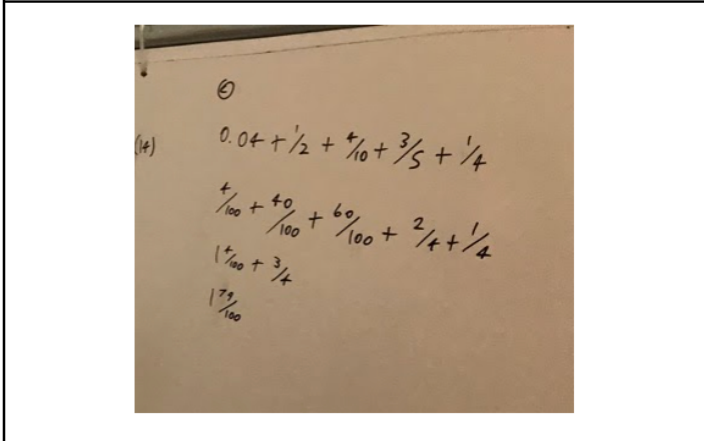 ©
(14) 0.04 + 1/2 + 4/10 + 3/5 + 1/4
4/100 + 40/100 + 60/100 + 2/4 + 1/4
1 4/100 + 3/4
1 79/100